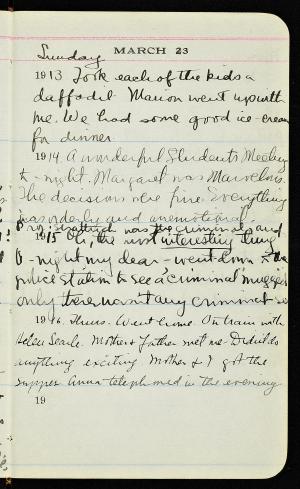 Sunday MARCH 23
1913 Took each of the kids a
daffodil. Marion went up with
me. We had some good ice-cream
for dinner
1914 A wonderful Students Meeting
to-night. Margaret was Marvelous.
The decisions were fine. Everything
was orderly and unemotional.
was the criminal and
1915 Oh, the most interesting thing
to-night my dear - went down to the
police station to see a "criminal" mugged
only there wasn't any criminal
1916. Thurs. Went home on train with
Helen Searle. Mother & Father met me. Didn't do
anything exciting. Mother & I got the
supper. Anna telephoned in the evening.
19